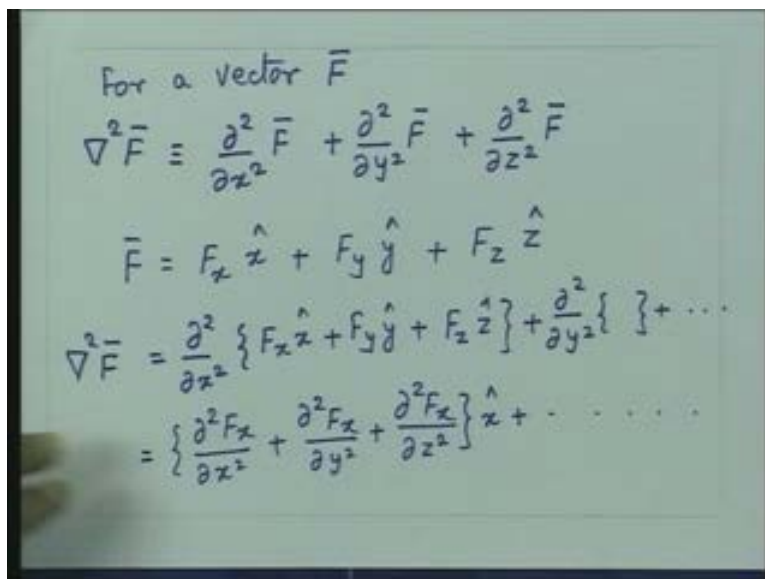 For a vector F̄
∇²F̄ ≡ ∂²/∂x² F̄ + ∂²/∂y² F̄ + ∂²/∂z² F̄
F̄ = Fₓ x̂ + F_y ŷ + F_z ẑ
∇²F̄ = ∂²/∂x² { Fₓ x̂ + F_y ŷ + F_z ẑ } + ∂²/∂y² { } + ...
= { ∂²Fₓ/∂x² + ∂²Fₓ/∂y² + ∂²Fₓ/∂z² } x̂ + · · · · ·